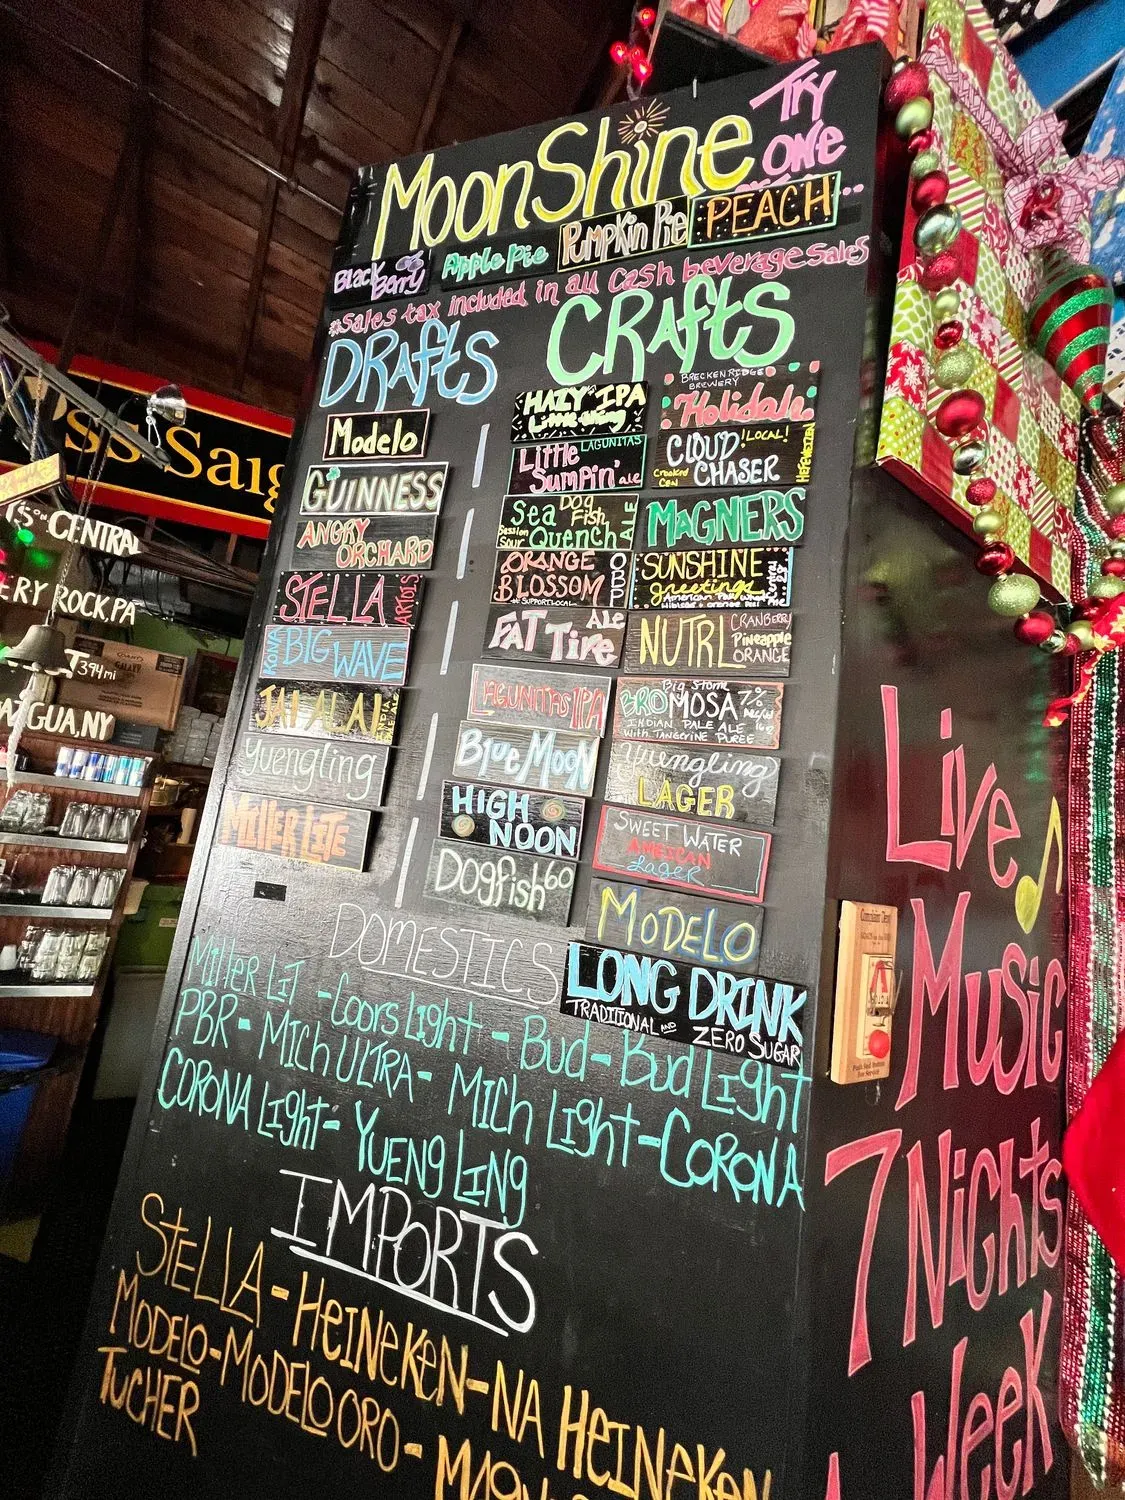 MoonShine
TRY
ONE
Black Berry
Apple Pie
Pumpkin Pie
PEACH
*Sales tax included in all Cash beverage Sales
DRAftS
Modelo
GUINNESS
ANGRY
ORCHARD
STELLA ARTOIS
KONA BIG WAVE
JAI ALAI INDIA PALE ALE
Yuengling
MILLER LITE
CRAftS
HAZY IPA
LAGUNITAS
Little
Sumpin' ale
Dog
Fish
Sea
Session
Sour Quench ALE
ORANGE
BLOSSOM
OBP
*SUPPORT LOCAL
FAT TIRE Ale
LAGUNITAS IPA
Blue Moon
HIGH
NOON
Dogfish 60
BRECKENRIDGE
BREWERY
Holiday
CLOUD !LOCAL!
CHASER
Crooked
Can
HEFEWEIZEN
MAGNERS
SUNSHINE
greetings
NUTRL
CRANBERRY
Pineapple
ORANGE
Big Storm
BROMOSA 7%
INDIAN PALE ALE
with TANGERINE PUREE
Yuengling
LAGER
SWEET WATER
AMERICAN
Lager
MODELO
LONG DRINK
TRADITIONAL AND ZERO SUGAR
DOMESTICS
Miller LIT - Coors Light - Bud - Bud Light
PBR - Mich ULTRA - Mich Light - CORONA
CORONA Light - YUENGLING
IMPORTS
STELLA - HEINEKEN - NA HEINEKEN
MODELO - MODELO ORO -
TUCHER
Live
Music
7 Nights
A Week
Complaint Dept
Push Red Button
For Service
CENTRAL
ERY ROCK, PA
394mi
GUA, NY